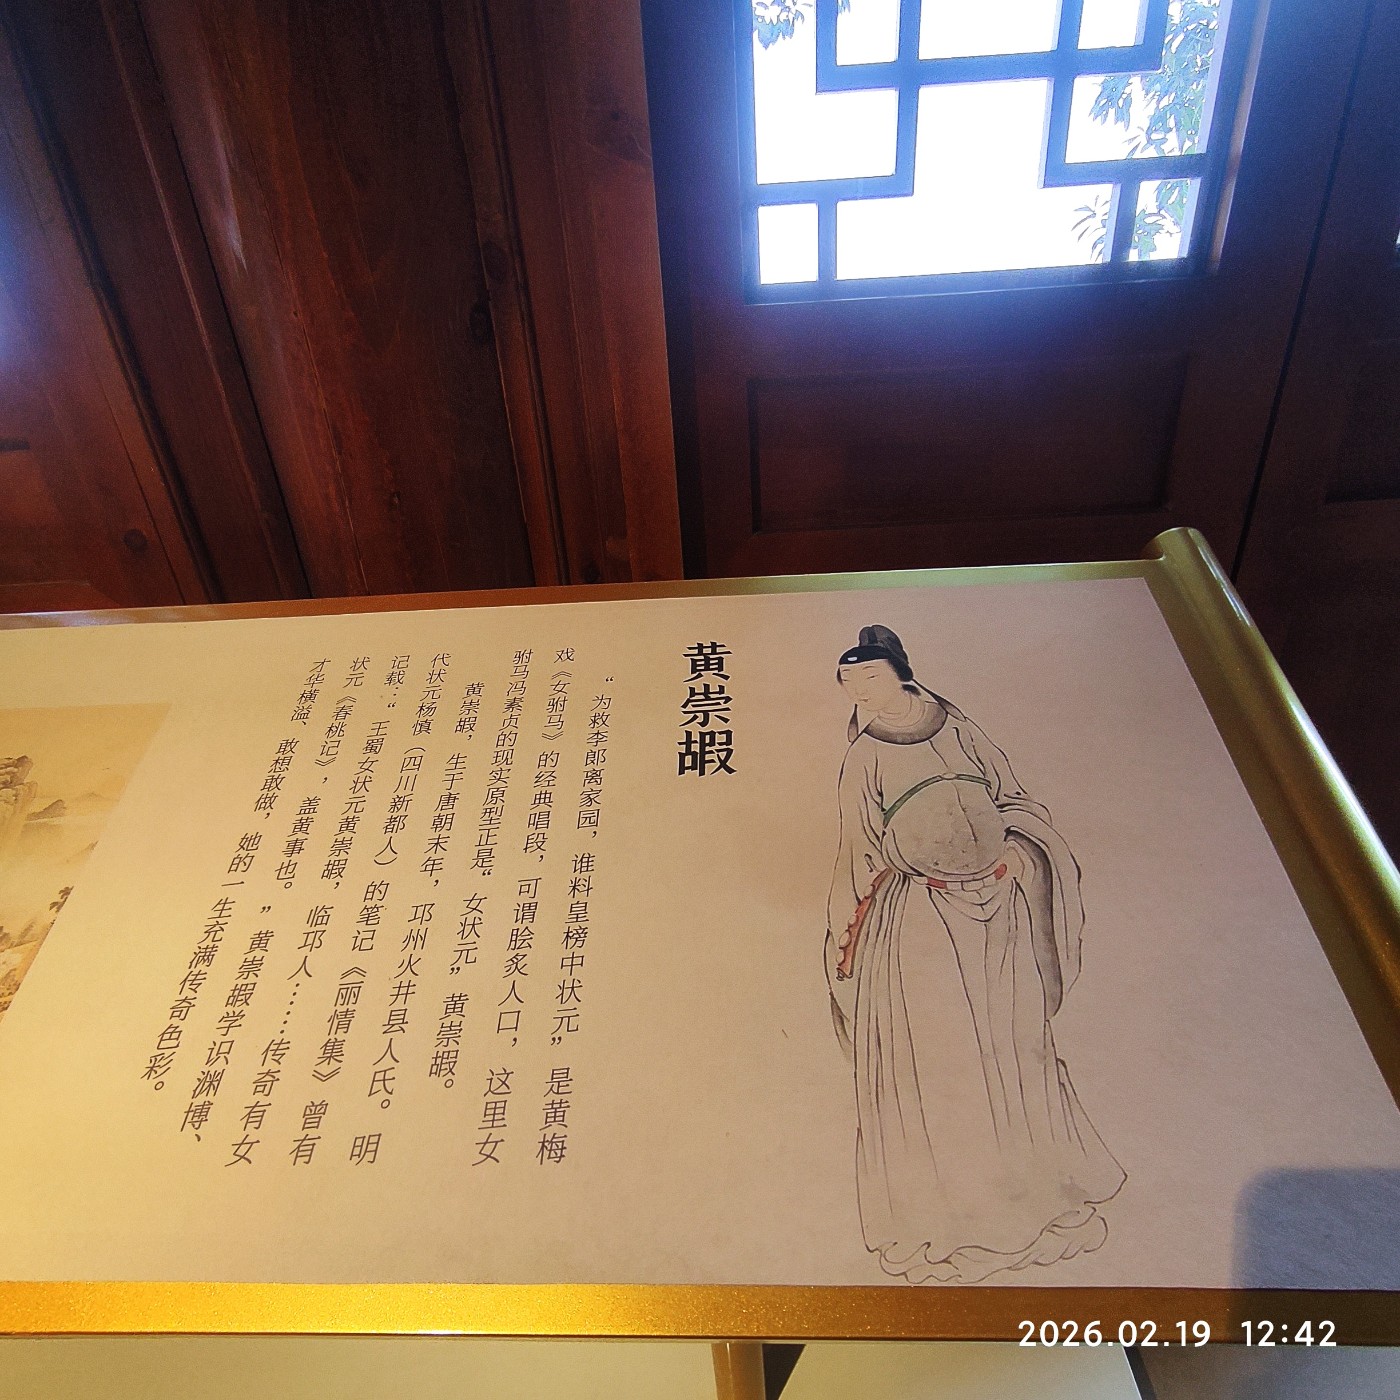 黄崇嘏
“为救李郎离家园，谁料皇榜中状元”是黄梅
戏《女驸马》的经典唱段，可谓脍炙人口，这里女
驸马冯素贞的现实原型正是“女状元”黄崇嘏。
黄崇嘏，生于唐朝末年，邛州火井县人氏。明
代状元杨慎（四川新都人）的笔记《丽情集》曾有
记载：“王蜀女状元黄崇嘏，临邛人……传奇有女
状元《春桃记》，盖黄事也。”黄崇嘏学识渊博、
才华横溢、敢想敢做，她的一生充满传奇色彩。
2026.02.19 12:42